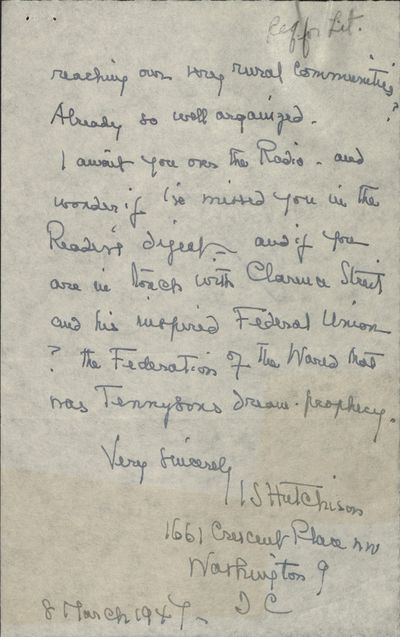 Req for Lit.
reaching our very rural Communities
?
Already so well organized.
I await you over the Radio - and
wonder if I've missed you in the
Reader's Digest - and if you
are in touch with Clarence Streit
and his inspired Federal Union
? the Federation of the World that
was Tennysons dream-prophecy.
Very Sincerely
I S Hutchison
1661 Crescent Place NW
Washington 9
D C
8 March 1947